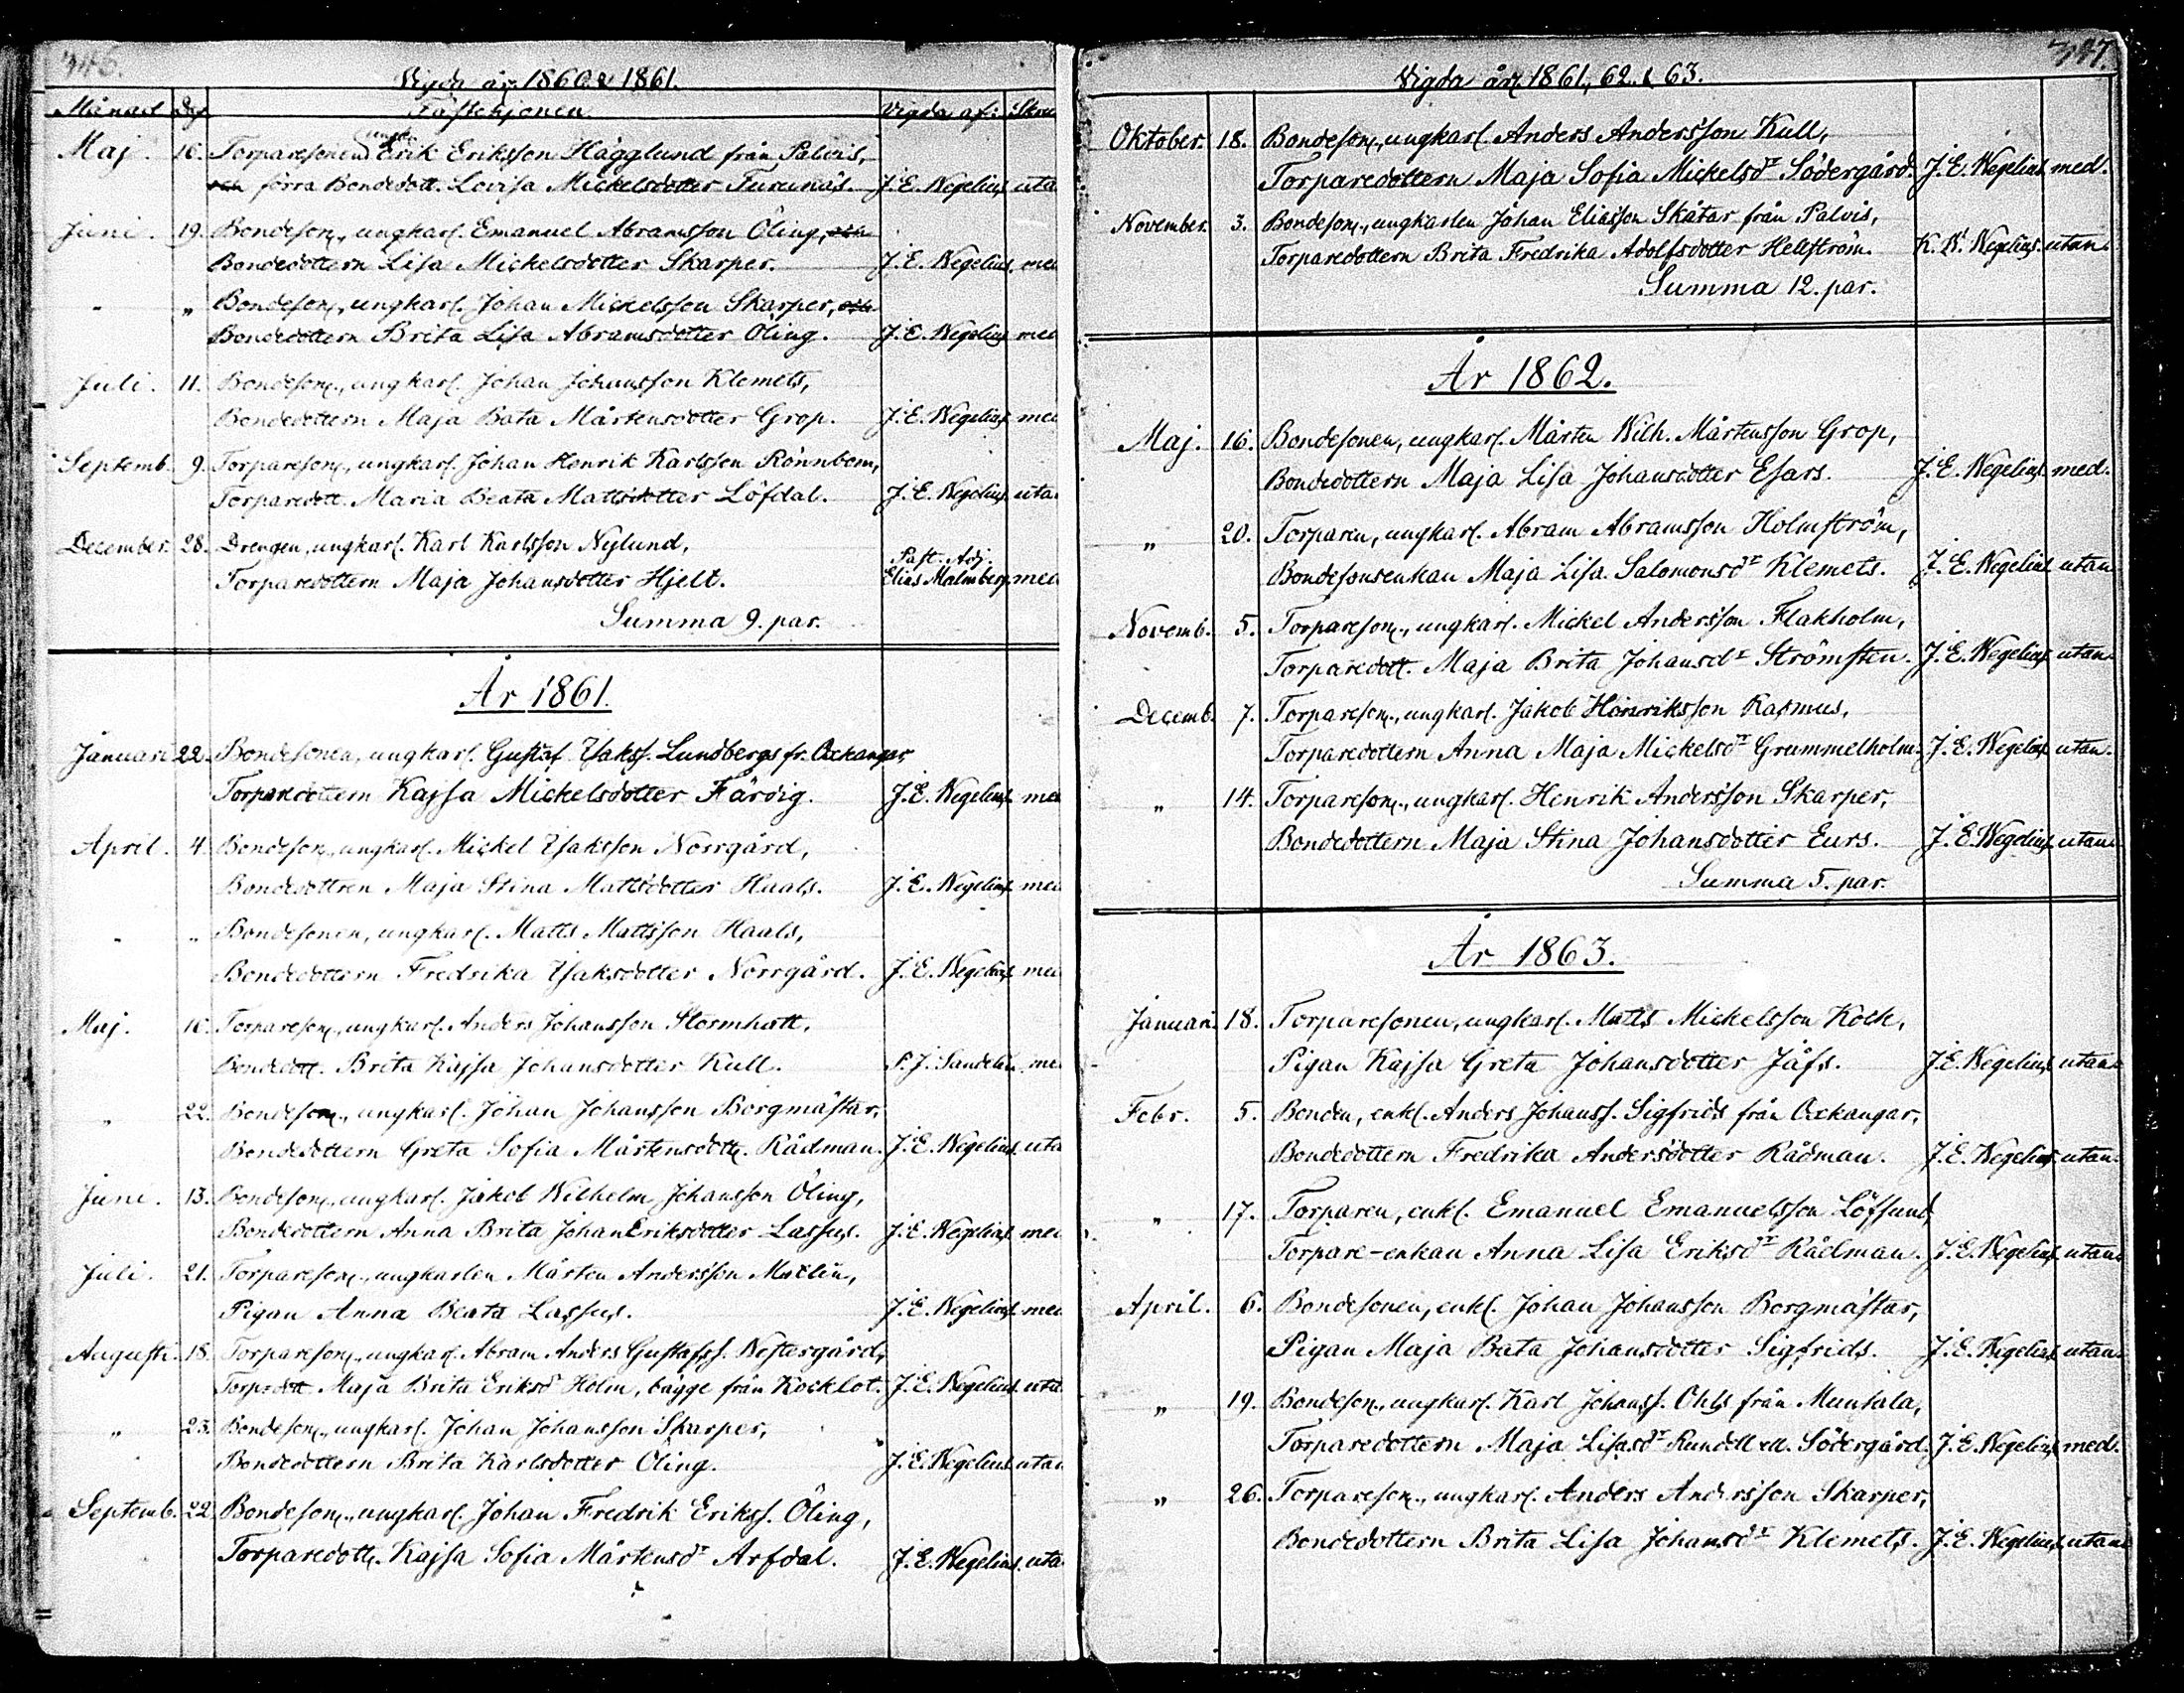 346.
Vigda år 1860 & 1861.
Månad Dag Fästehjonen Vigda af:
Maj. 16. Torparesonen ungk. Erik Eriksson Hägglund från Palvis,
och förra Bondedott. Lovisa Mickelsdotter Furunäs. J. E. Wegelius, uta
Juni. 19. Bondeson, ungkarl. Emanuel Abramsson Öling, och
Bondedottern Lisa Mickelsdotter Skarper. J. E. Wegelius. med
- " Bondeson, ungkarl. Johan Mickelsson Skarper, och
Bondedottern Brita Lisa Abramsdotter Öling. J. E. Wegelius med
Juli. 11. Bondeson, ungkarl. Johan Johansson Klemets,
Bondedottern Maja Bata Mårtensdotter Grop. J. E. Wegelius med
Septemb. 9. Torpareson, ungkarl. Johan Henrik Karlsson Rönnbom,
Torparedott. Maria Beata Mattsdotter Löfdal. J. E. Wegelius uta
December. 28. Drengen, ungkarl. Karl Karlsson Nylund,
Torparedottern Maja Johansdotter Hjelt. Past. Adj. Elias Malmberg. med
Summa 9. par.
År 1861.
Januari 22. Bondesonen, ungkarl. Gustaf Isakss. Lundbergs fr. Oxkangar,
Torparedottern Kajsa Mickelsdotter Färdig. J. E. Wegelius. med
April. 4. Bondeson, ungkarl. Mickel Isaksson Norrgård,
Bondedottren Maja Stina Mattsdotter Haals. J. E. Wegelius. med
" " Bondesonen, ungkarl. Matts Mattsson Haals,
Bondedottern Fredrika Isaksdotter Norrgård. J. E. Wegelius med
Maj. 16. Torpareson, ungkarl. Anders Johansson Stormhatt,
Bondedott. Brita Kajsa Johansdotter Kull. P. J. Sandelin. med
" 22. Bondeson, ungkarl. Johan Johansson Borgmästar,
Bondedottern Greta Sofia Mårtensdott. Rådman. J. E. Wegelius uta
Juni. 13. Bondeson, ungkarl. Jakob Wilhelm Johansson Öling,
Bondedottern Anna Brita Johan Eriksdotter Lassus. J. E. Wegelius med
Juli. 21. Torpareson, ungkarlen Mårten Andersson Matlin,
Pigan Anna Beata Lassus. J. E. Wegelius. med
Augusti. 18. Torpareson, ungkarl. Abram Anders Gustafss. Westergård,
Torpedott. Maja Brita Eriksdr Holm, bägge från Kocklot. J. E. Wegelius. uta
" 23. Bondeson, ungkarl. Johan Johansson Skarper,
Bondedottern Brita Karlsdotter Öling. J. E. Wegelius utan
Septemb. 22. Bondeson, ungkarl. Johan Fredrik Erikss. Öling,
Torparedott. Kajsa Sofia Mårtensdr Arfdal. J. E. Wegelius. uta
347.
Vigda år 1861, 62. & 63.
Oktober. 18. Bondeson, ungkarl. Anders Andersson Kull,
Torparedottern Maja Sofia Mickelsdr Södergård. J. E. Wegelius med.
November. 3. Bondeson, ungkarlen Johan Eliasson Skåtar från Palvis,
Torparedottern Brita Fredrika Adolfsdotter Hellström. K. W. Wegelius. utan.
Summa 12. par.
År 1862.
Maj. 16. Bondesonen, ungkarl. Mårten Wilh. Mårtensson Grop,
Bondedottern Maja Lisa Johansdotter Esars. J. E. Wegelius. med.
" 20. Torparen, ungkarl. Abram Abramsson Holmström,
Bondesonsenkan Maja Lisa Salomonsdr Klemets. J. E. Wegelius utan
Novemb. 5. Torpareson, ungkarl. Mickel Andersson Flakholm,
Torparedott. Maja Brita Johansdr Strömsten. J. E. Wegelius utan
Decemb. 7. Torpareson, ungkarl. Jakob Henriksson Rasmus,
Torparedottern Anna Maja Mickelsdr Grummelholm. J. E. Wegelius utan.
" 14. Torpareson, ungkarl. Henrik Andersson Skarper,
Bondedottern Maja Stina Johansdotter Eurs. J. E. Wegelius utan
Summa 5. par.
År 1863.
Januari. 18. Torparesonen, ungkarl. Matts Mickelsson Kock,
Pigan Kajsa Greta Johansdotter Jåfs. J. E. Wegelius utan
Febr. 5. Bonden, enkl. Anders Johanss. Sigfrids från Oxkangar,
Bondedottern Fredrika Andersdotter Rådman. J. E. Wegelius utan.
" 17. Torparen, enkl. Emanuel Emanuelsson Löfsund,
Torpare-enkan Anna Lisa Eriksdr Rådman. J. E. Wegelius utan.
April. 6. Bondesonen, enkl. Johan Johansson Borgmästar,
Pigan Maja Bata Johansdotter Sigfrids. J. E. Wegelius utan
" 19. Bondeson, ungkarl. Karl Johanss. Ohls från Munsala,
Torparedottern Maja Lisasdr Rundell ell. Södergård. J. E. Wegelius med.
" 26. Torpareson, ungkarl. Anders Andersson Skarper,
Bondedottern Brita Lisa Johansdr Klemets. J. E. Wegelius utan